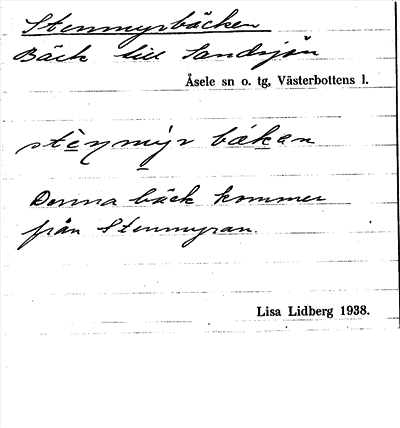 Stenmyrbäcken
Bäck till Sandsjön
Åsele sn o. tg, Västerbottens l.
stèn̥my̱r bák̠en
Denna bäck kommer
från Stenmyran.
Lisa Lidberg 1938.